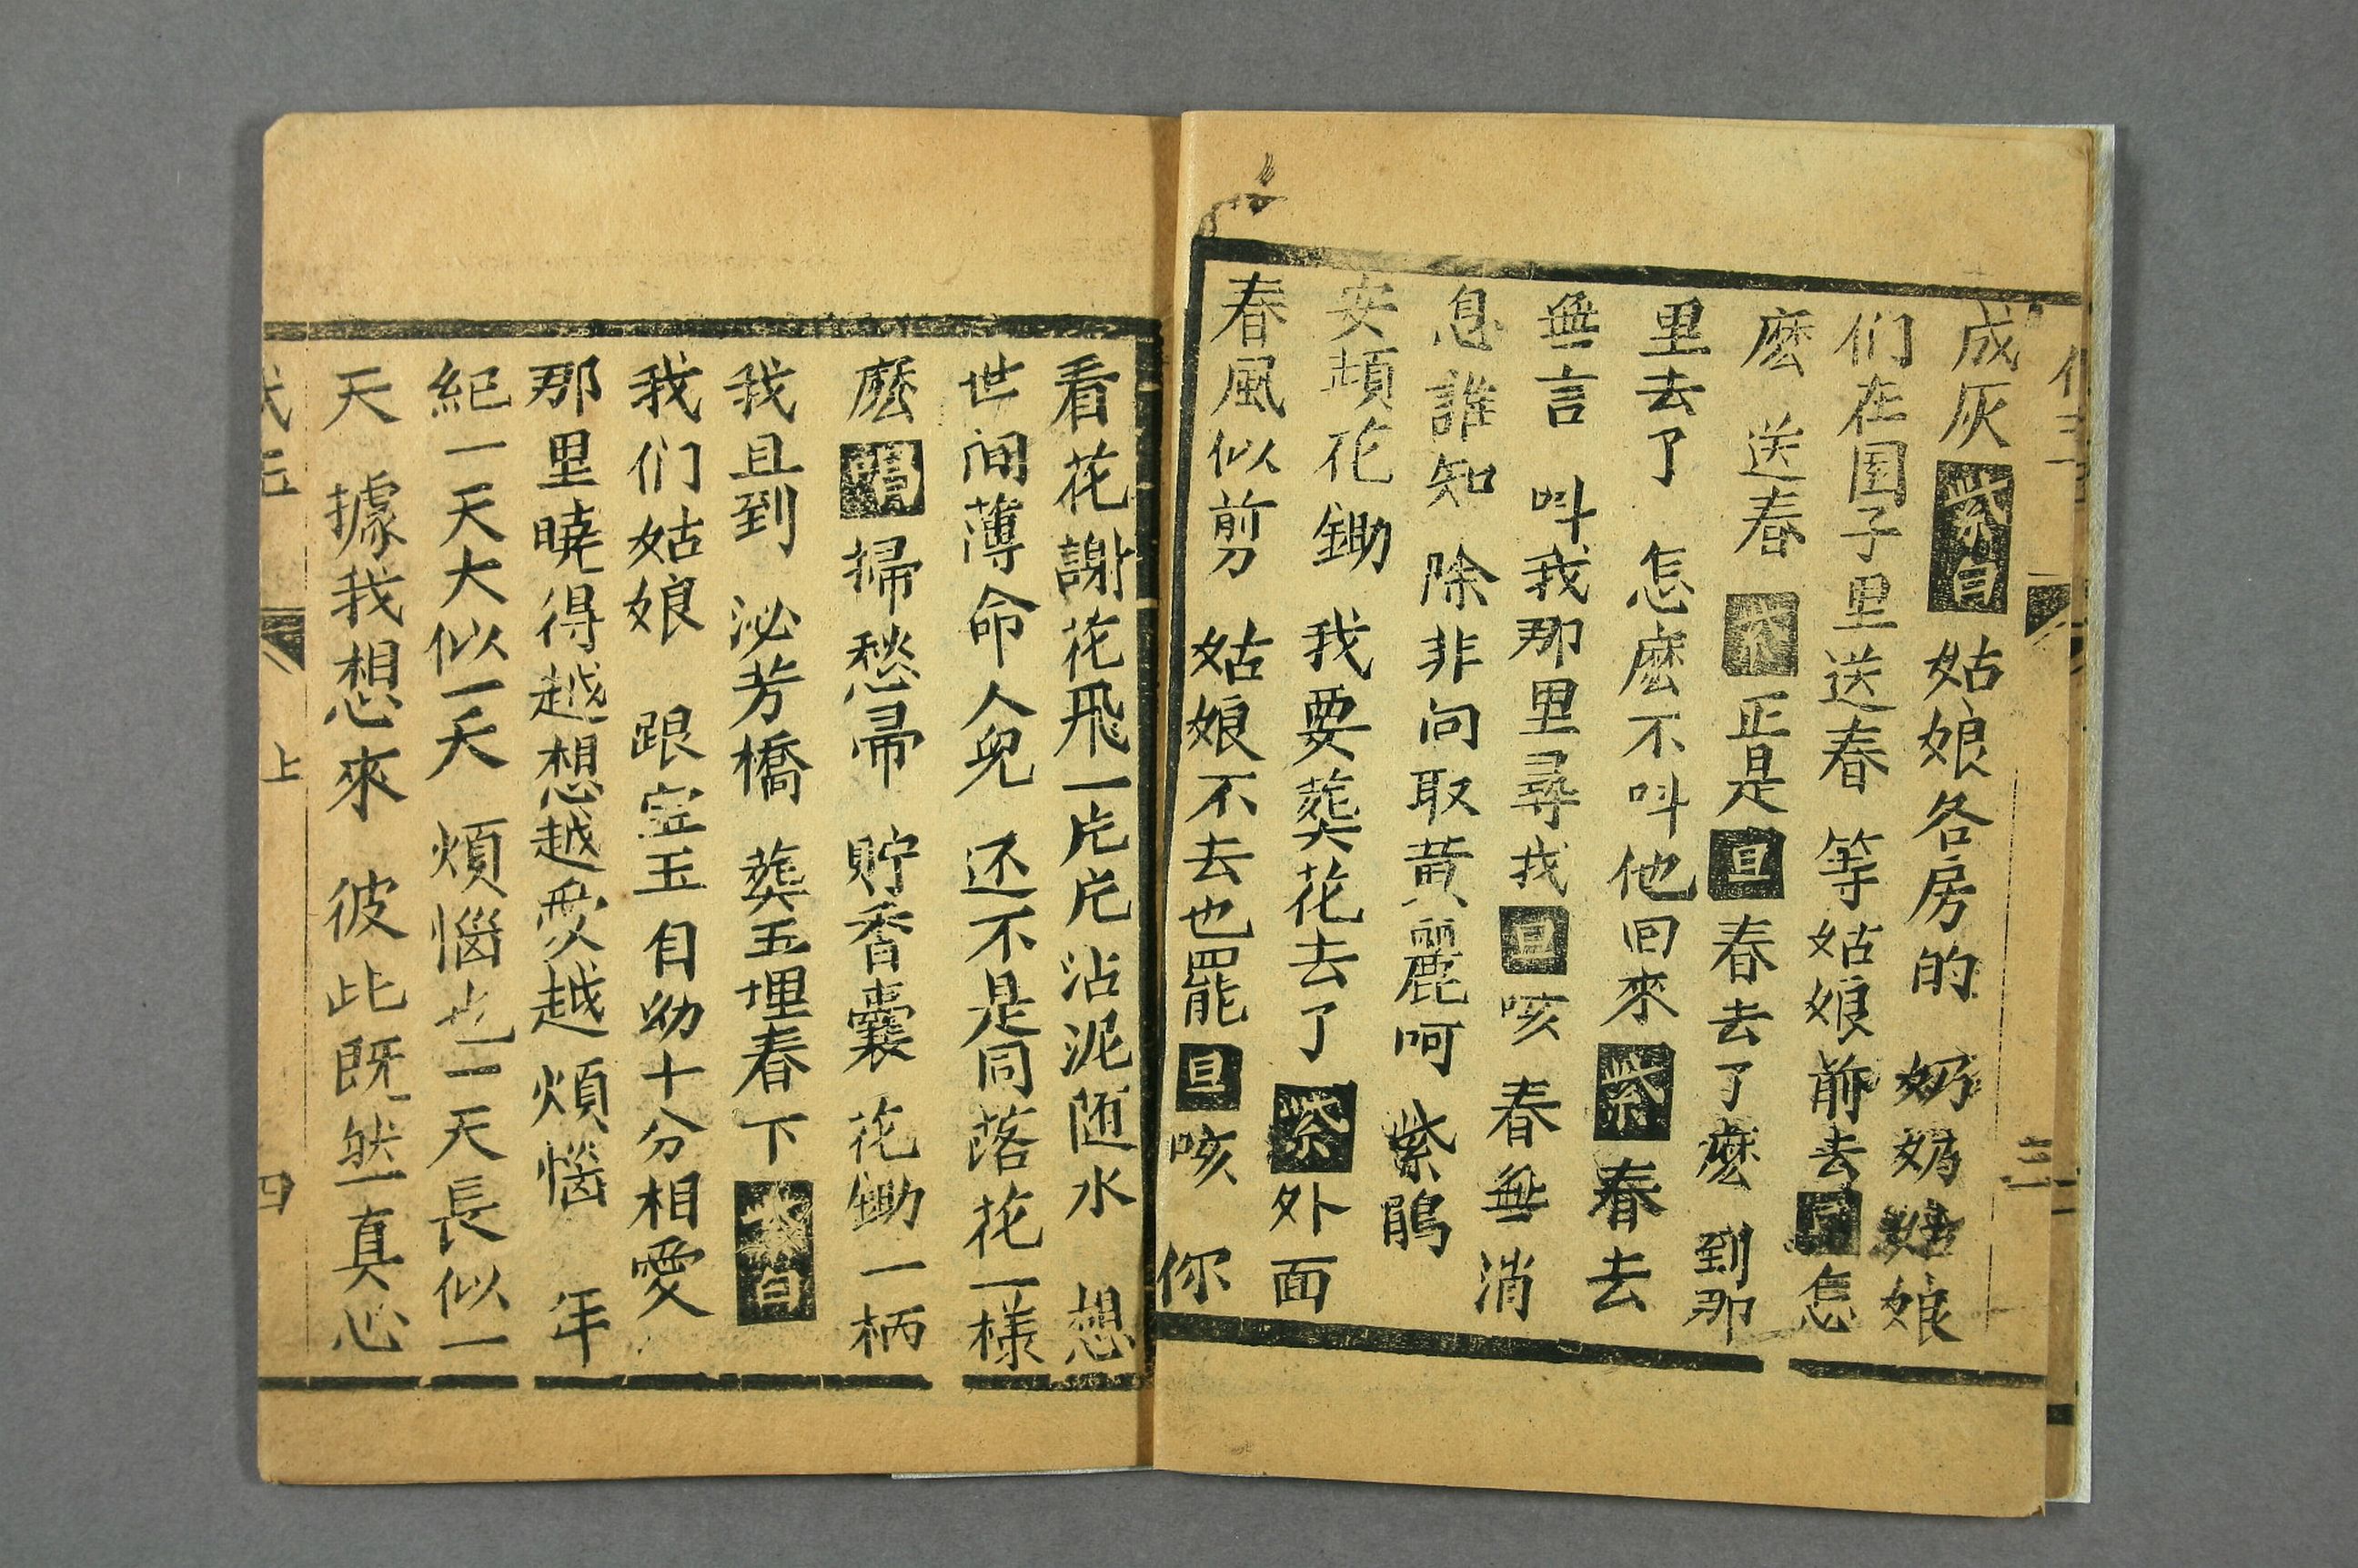 成灰紫白姑娘各房的奶奶姑娘
们在园子里送春等姑娘前去旦怎
麽送春紫正是旦春去了麽到那
里去了怎麽不叫他回來紫春去
無言叫我那里尋找旦咳春無消
息誰知除非问取黄麗呵紫鵑
安頓花鋤我要葬花去了紫外面
春風似剪姑娘不去也罷旦咳你
看花謝花飛一片片沾泥随水想
世间薄命人兒还不是同落花一樣
麽唱掃愁帚貯香囊花鋤一柄
我且到泌芳橋葬玉埋春下紫白
我们姑娘跟宝玉自幼十分相愛
那里曉得越想越愛越煩惱年
紀一天大似一天煩惱也一天長似一
天據我想來彼此既然一真心
上
四
三